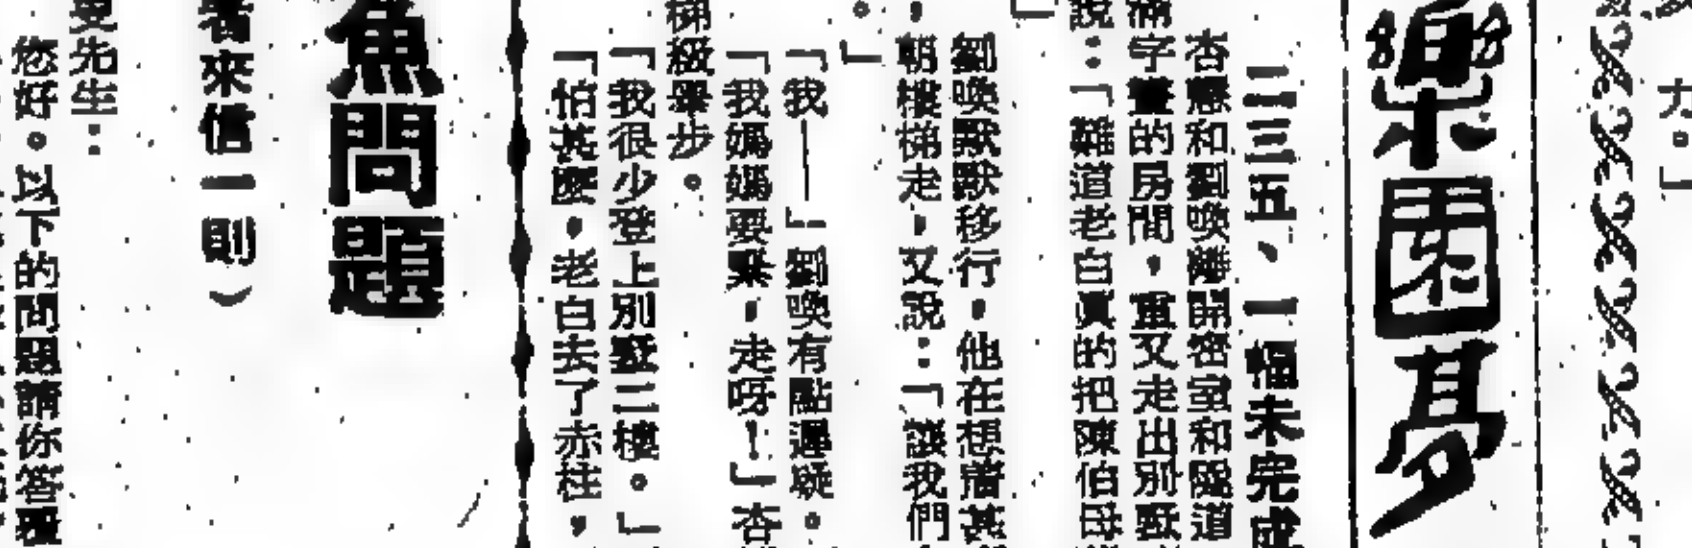 力。」
樂園夢
二三五、一幅未完成
杏慧和劉喚離開密室和隧道
滿字畫的房間，重又走出別墅
說：「難道老白真的把陳伯母
」
劉喚默默移行，他在想着甚
朝樓梯走，又說：「讓我們
。」
「我——」劉喚有點遲疑。
「我媽媽要緊，走呀！」杏
梯級舉步。
「我很少登上別墅二樓。」
「怕甚麼，老白去了赤柱，
魚問題
者來信一則）
先生：
您好。以下的問題請你答覆